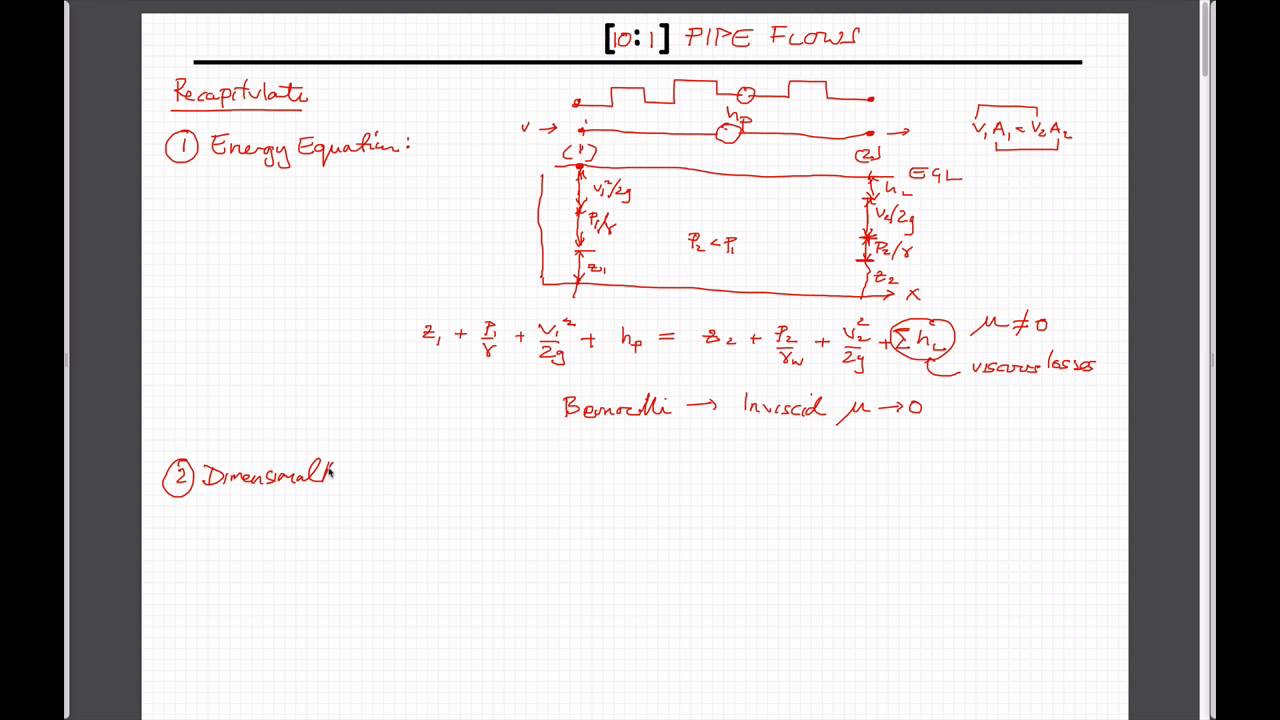 [10:1] PIPE FLOWS
Recapitulate
① Energy Equation:
hp
V →
(1)
(2)
V₁A₁ = V₂A₂
EGL
hL
V₁²/2g
V₂/2g
P₁/γ
P₂/γ
P₂ < P₁
z₁
z₂
x
z₁ + P₁/γ + V₁²/2g + hp = z₂ + P₂/γw + V₂²/2g + Σ hL
μ ≠ 0
viscous losses
Bernoulli → Inviscid μ → 0
② Dimensional